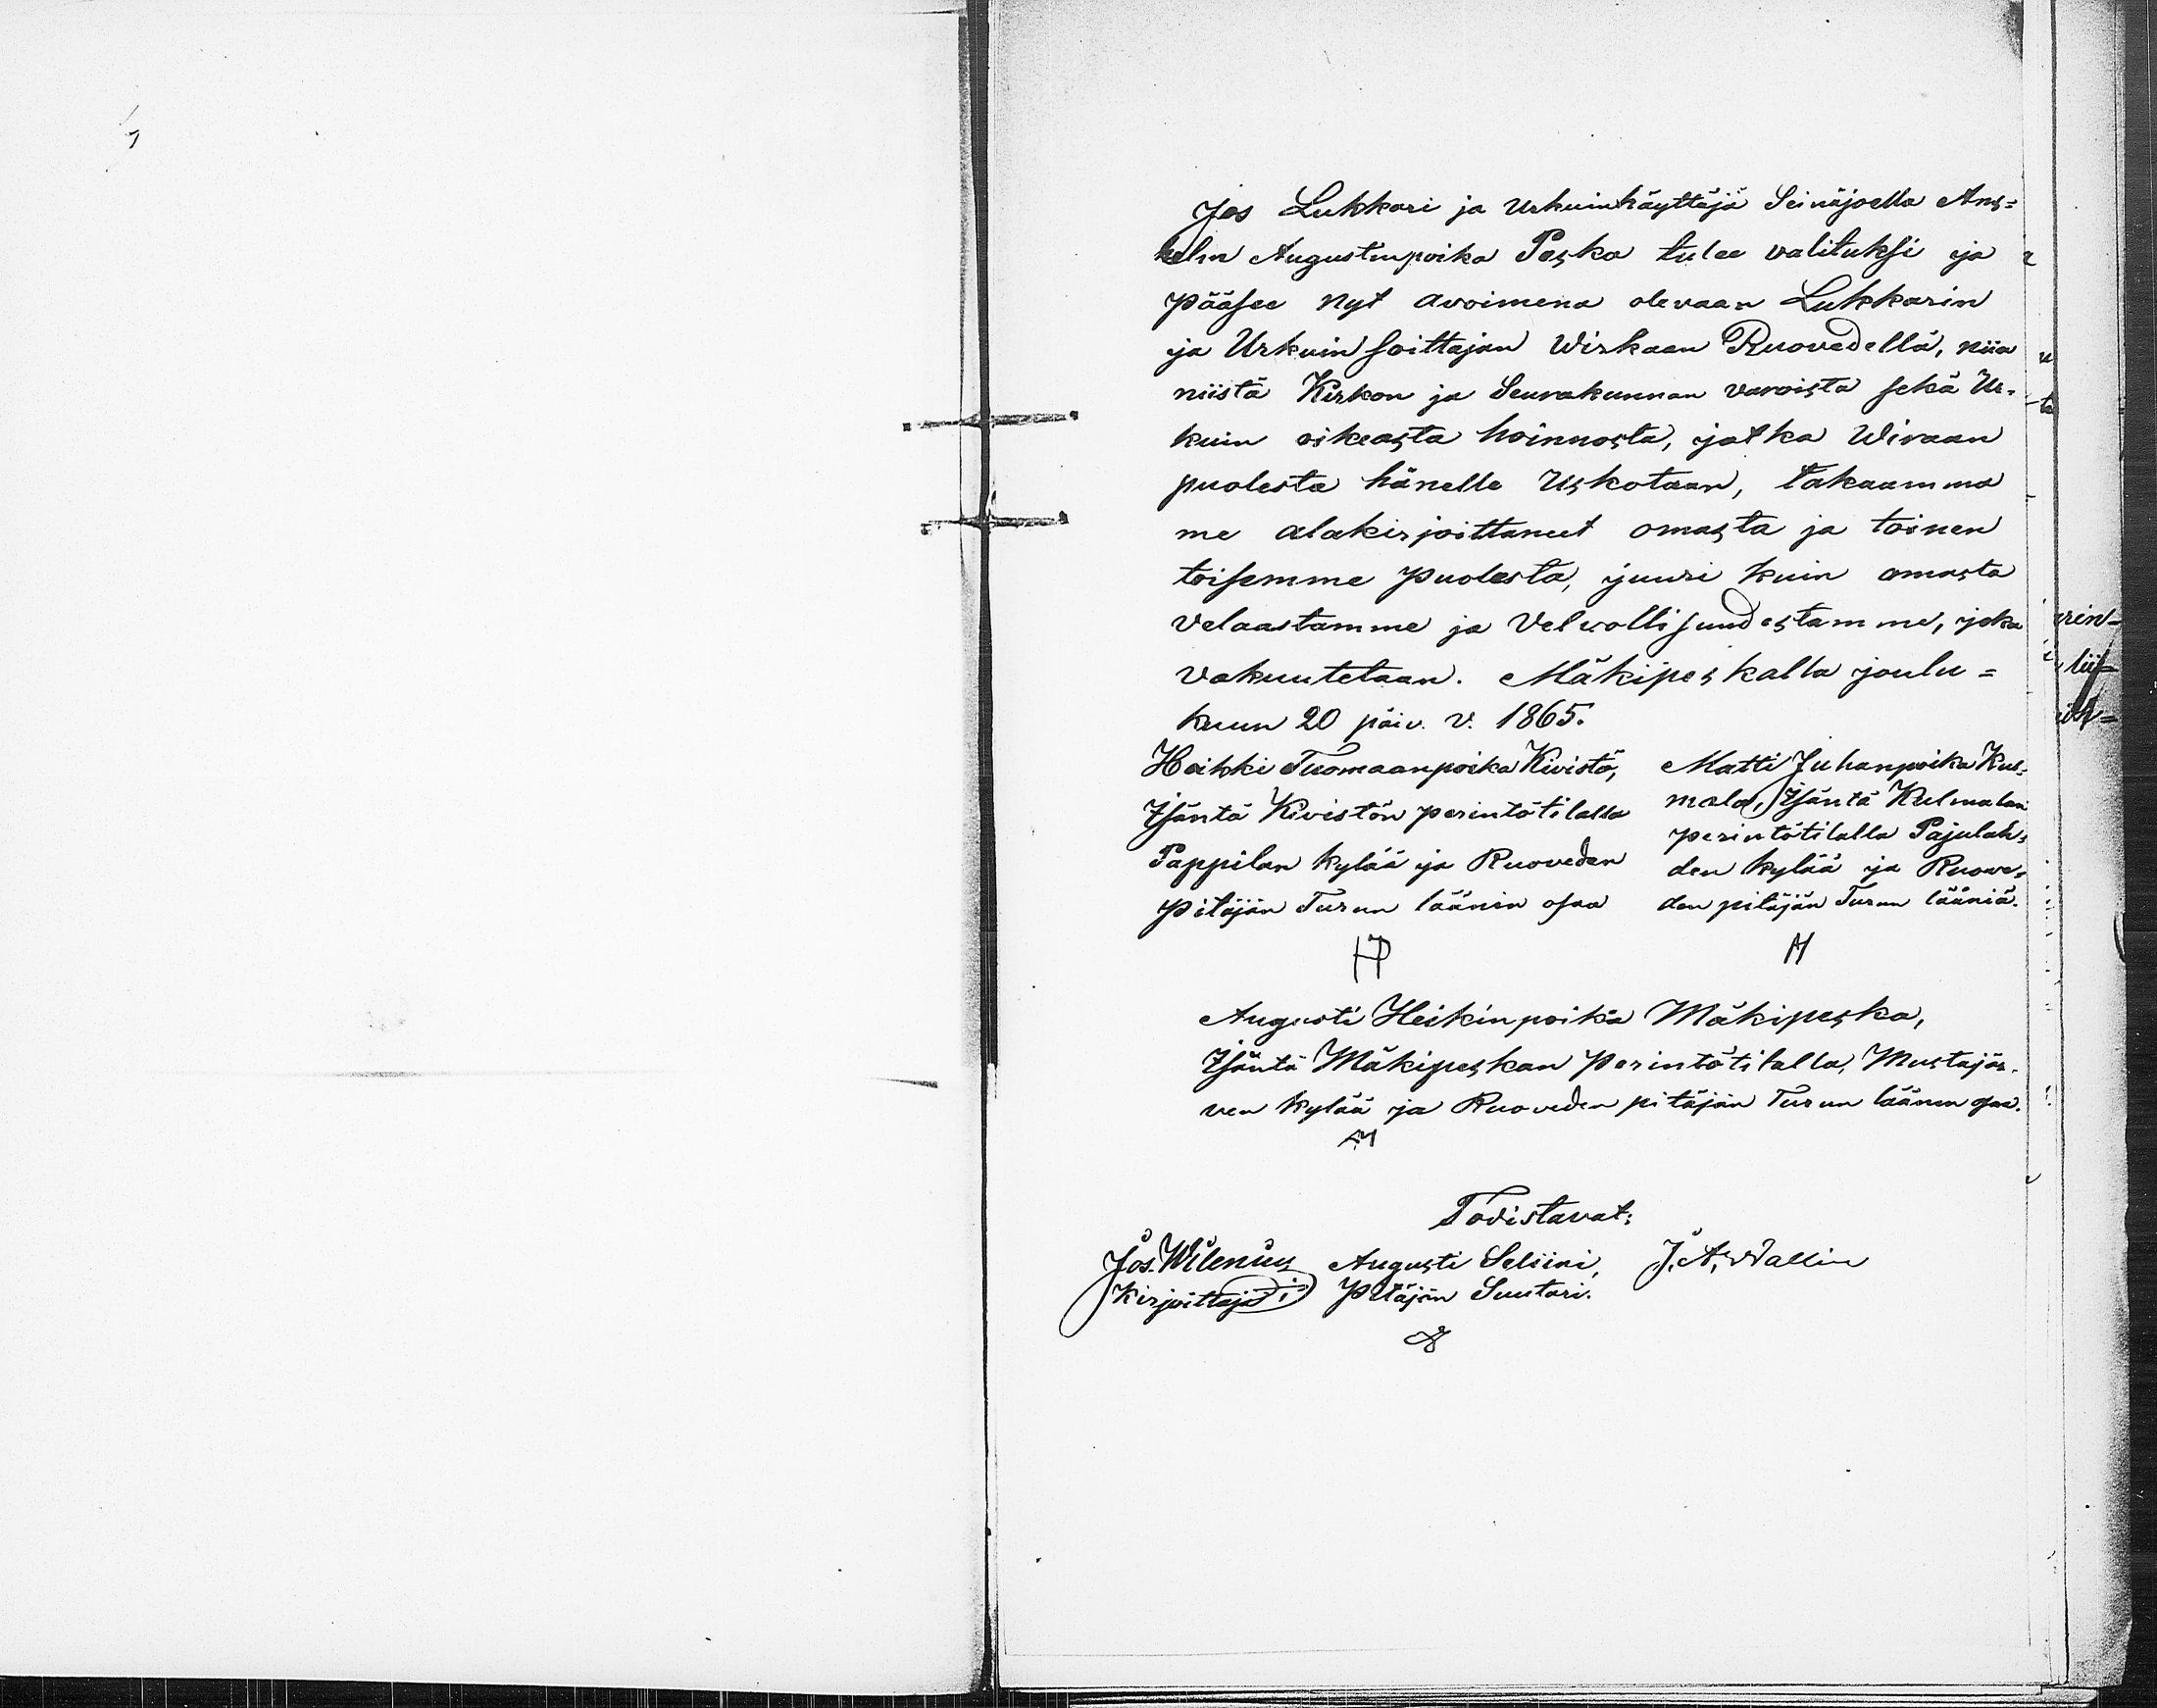 Jos Lukkari ja Urkuinkäyttäjä Seinäjoella Ans=
helm Augustinpoika Peska tulee valituksi ja
pääsee nyt avoimena olevaan Lukkarin
ja Urkuin soittajan Wirkaan Ruovedellä, niin
niistä Kirkon ja Seurakunnan varoista sekä Ur=
kuin oikeasta hoinnosta, jotka Wiraan
puolesta hänelle Uskotaan, takaamma
me alakirjoittaneet omasta ja toinen
toisemme puolesta, juuri kuin omasta
velaastamme ja Velwollisuudestamme, joka
vakuutetaan. Mäkipeskalla joulu=
kuun 20 päiv. v. 1865.
Heikki Tuomaanpoika Kivistö,
Isäntä Kivistön perintötilalla
Pappilan kylää ja Ruoveden
Pitäjän Turun läänin osaa
HP
Matti Juhanpoika Kul=
mala, Isäntä Kulmalan
perintötilalla Pajulah=
den kylää ja Ruowe=
den pitäjän Turun lääniä.
Augusti Heikinpoika Mäkipeska,
Isäntä Mäkipeskan Perintötilalla, Mustajär=
ven kylää ja Ruoveden pitäjän Turun läänin osaa.
Todistavat:
Jos. Wilenius
Kirjoittaja
Augusti Seliini,
Pitäjän Suutari.
J. A. Wallin